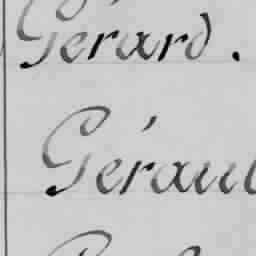 Gérard.
Gérau